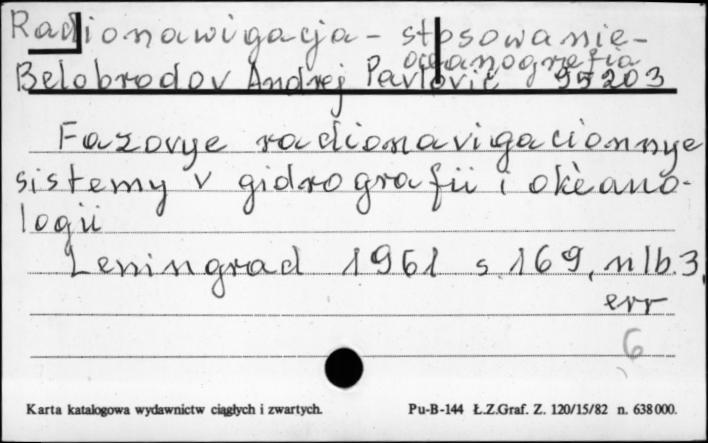 Radionawigacja - stosowanie -
oceanografia
Belobrodov Andrej Pavlovič 95203
Fazovye radionavigacionnye
sistemy v gidrografii i okèano-
logii
Leningrad 1961 s. 169, nlb. 3,
err
6
Karta katalogowa wydawnictw ciągłych i zwartych. Pu-B-144 Ł.Z.Graf. Z. 120/15/82 n. 638000.